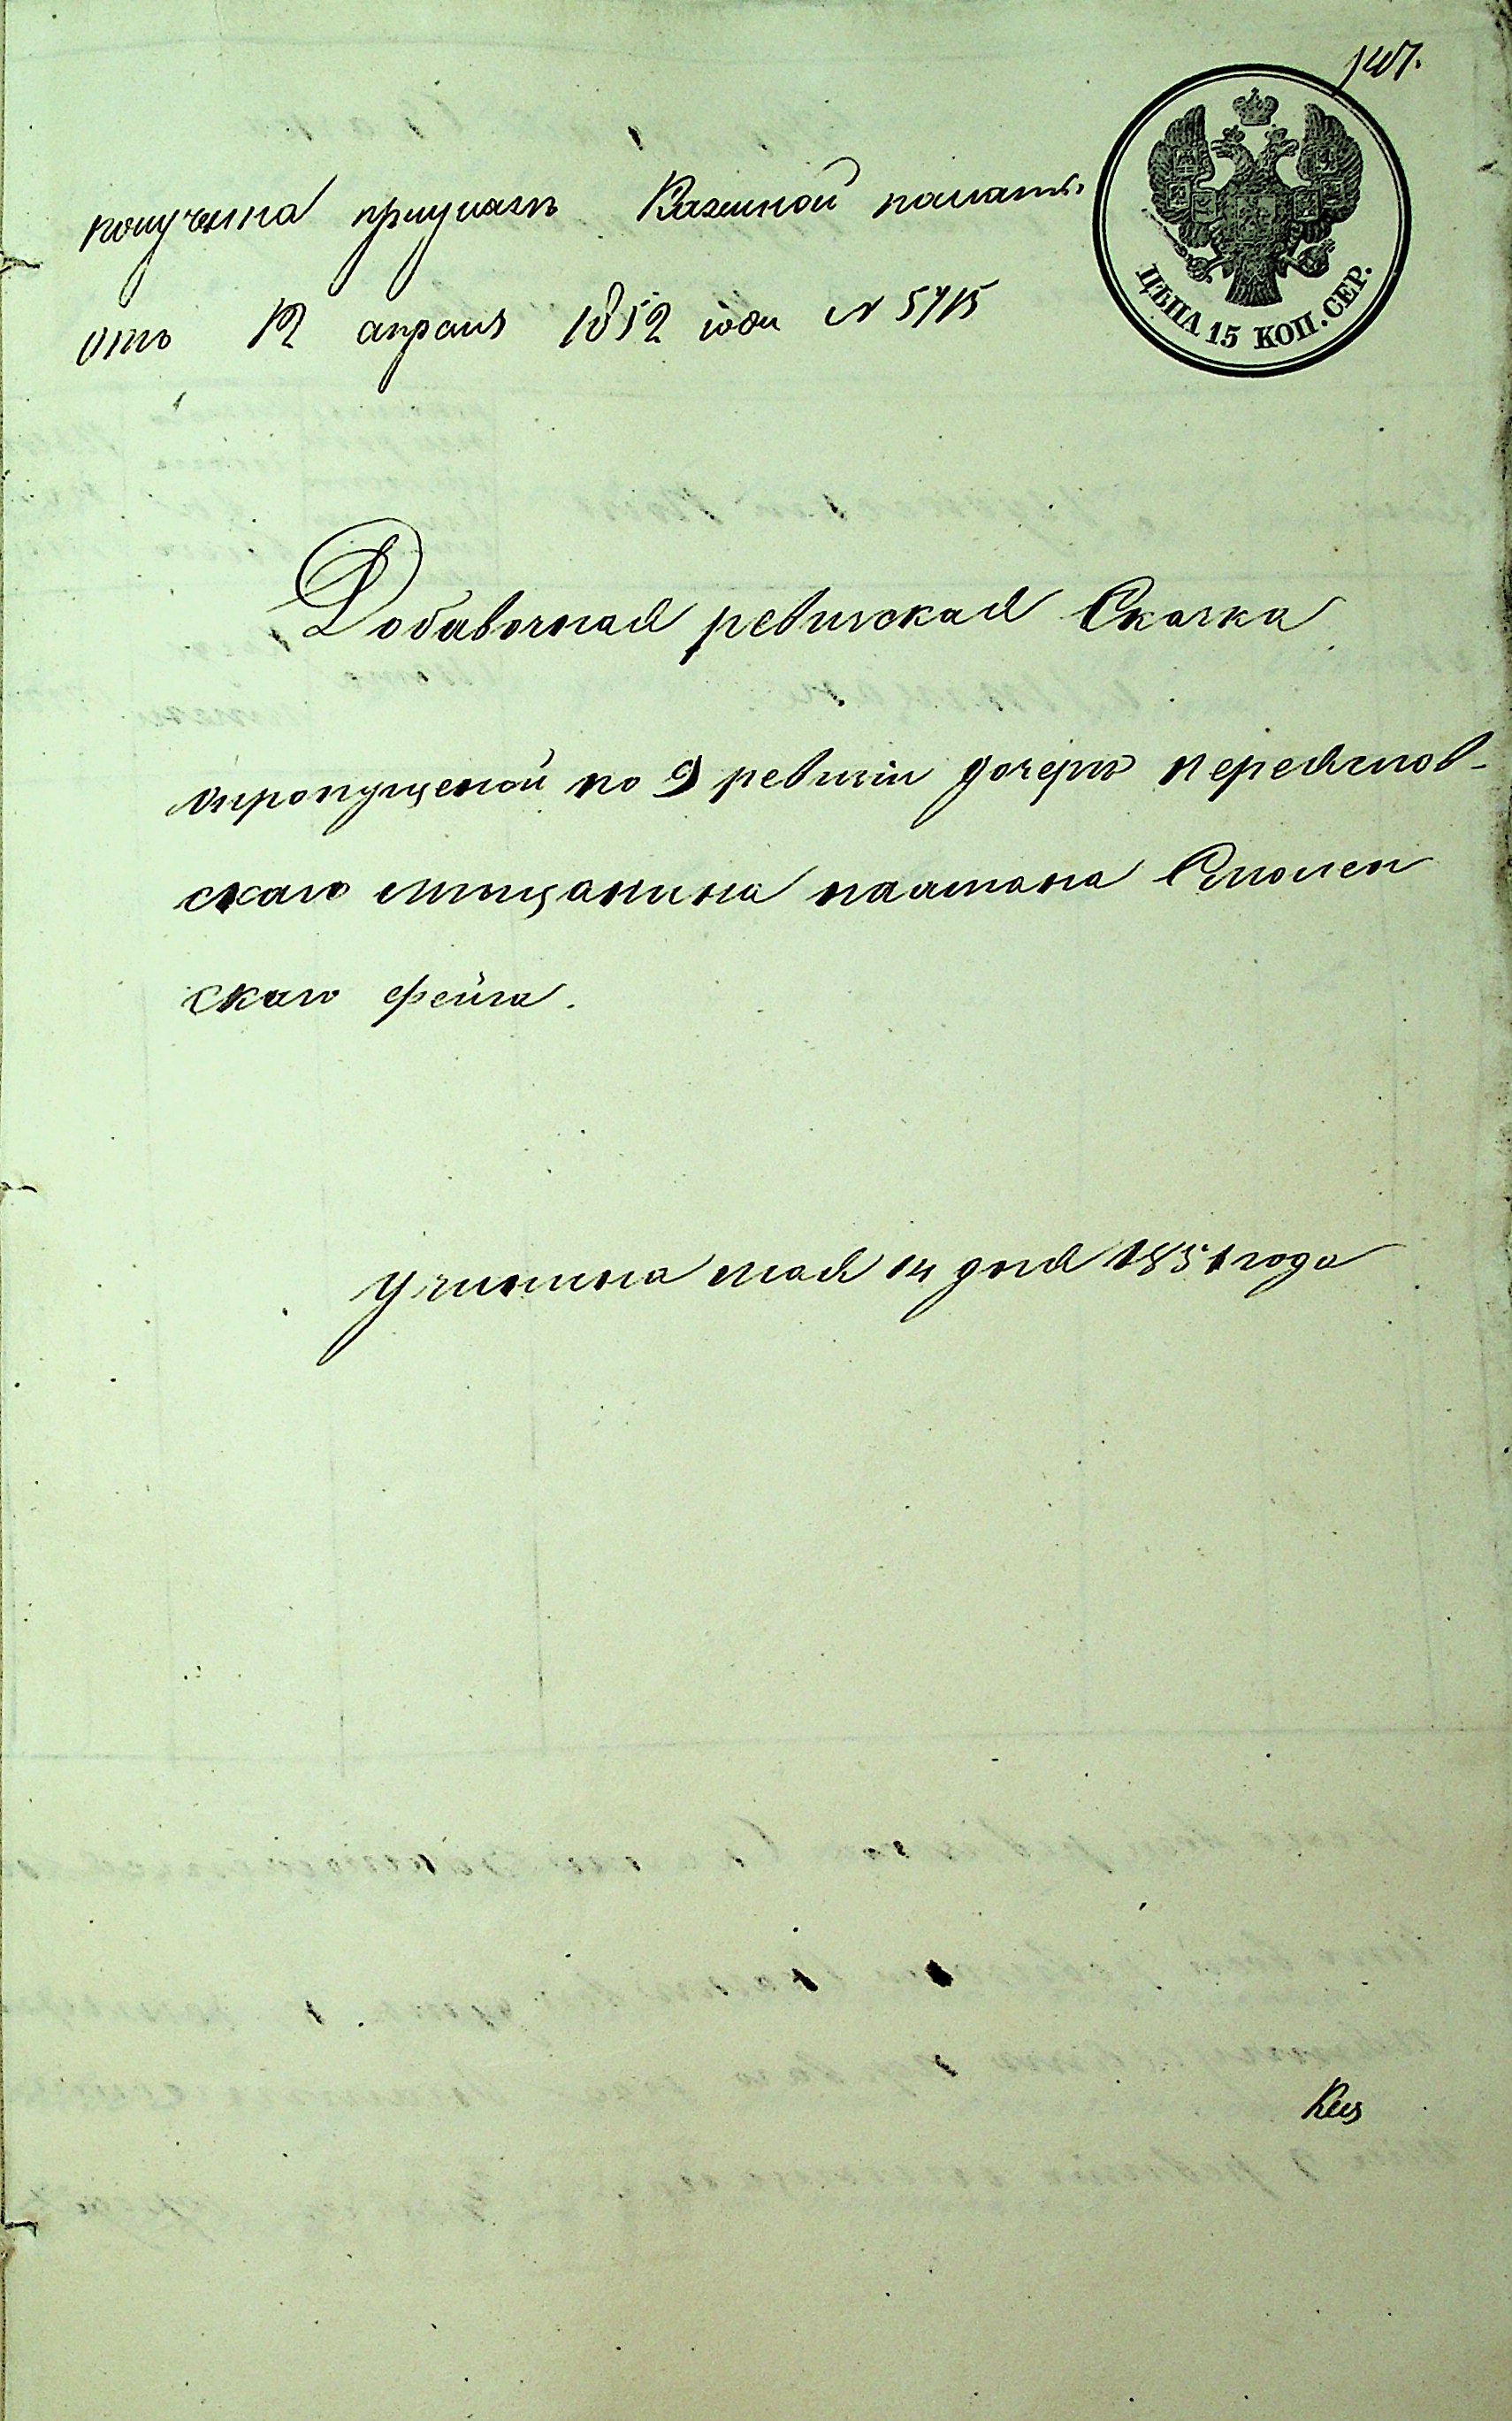 147.
получена приуказъ Казенной палаты
отъ 12 апреля 1852 года N 5715
ЦѢНА 15 КОП. СЕР.
Добавочная ревизская Сказка
опропущеной по 9 ревизіи дочеръ переяслов-
скаго мѣщанина наатана Смолен
скаго Фейга.
Учинина мая 14 дня 1851 года